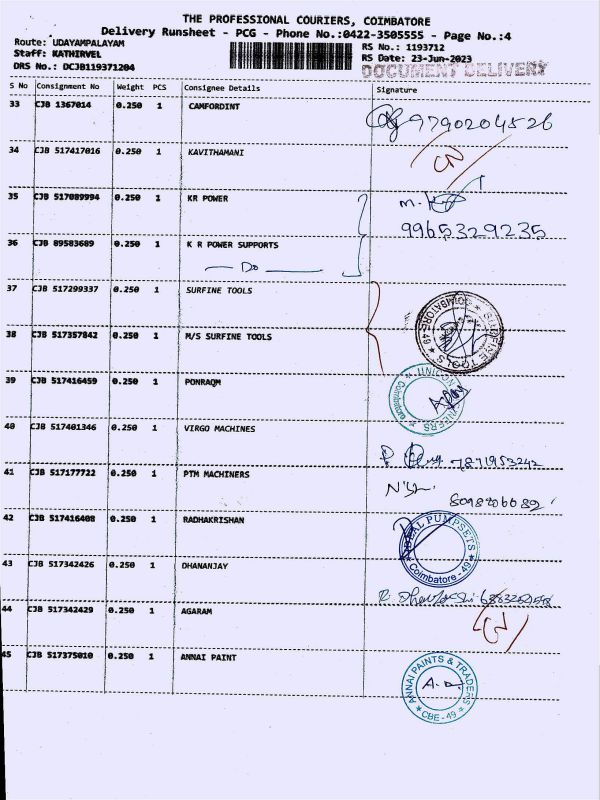 THE PROFESSIONAL COURIERS, COIMBATORE
Delivery Runsheet - PCG - Phone No.:0422-3505555 - Page No.:4
Route: UDAYAMPALAYAM
RS No.: 1193712
Staff: KATHIRVEL
RS Date: 23-Jun-2023
DRS No.: DCJB119371204
DOCUMENT DELIVERY
S No Consignment No Weight PCS Consignee Details Signature
33 CJB 1367014 0.250 1 CAMFORDINT 9790204526
34 CJB 517417016 0.250 1 KAVITHAMANI
35 CJB 517089994 0.250 1 KR POWER
9965329235
36 CJB 89583689 0.250 1 K R POWER SUPPORTS
Do
37 CJB 517299337 0.250 1 SURFINE TOOLS
38 CJB 517357842 0.250 1 M/S SURFINE TOOLS
COIMBATORE-49
39 CJB 517416459 0.250 1 PONRAQM
40 CJB 517401346 0.250 1 VIRGO MACHINES 7871953242
41 CJB 517177722 0.250 1 PTM MACHINERS
42 CJB 517416408 0.250 1 RADHAKRISHAN
PUMPSETS
Coimbatore - 49
43 CJB 517342426 0.250 1 DHANANJAY
44 CJB 517342429 0.250 1 AGARAM
45 CJB 517375010 0.250 1 ANNAI PAINT
ANNAI PAINTS & TRADERS
CBE - 49